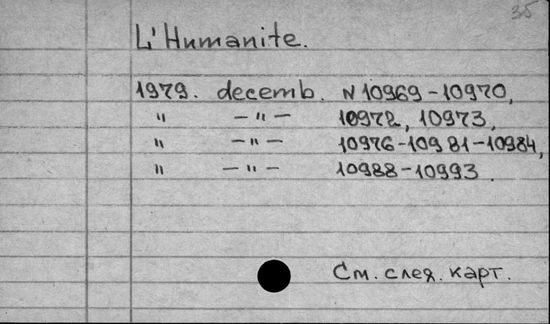 35
L'Humanite.
1979. decemb. N 10969-10970,
" -"- 10972, 10973,
" -"- 10976-10981-10984,
" -"- 10988-10993.
См. след. карт.